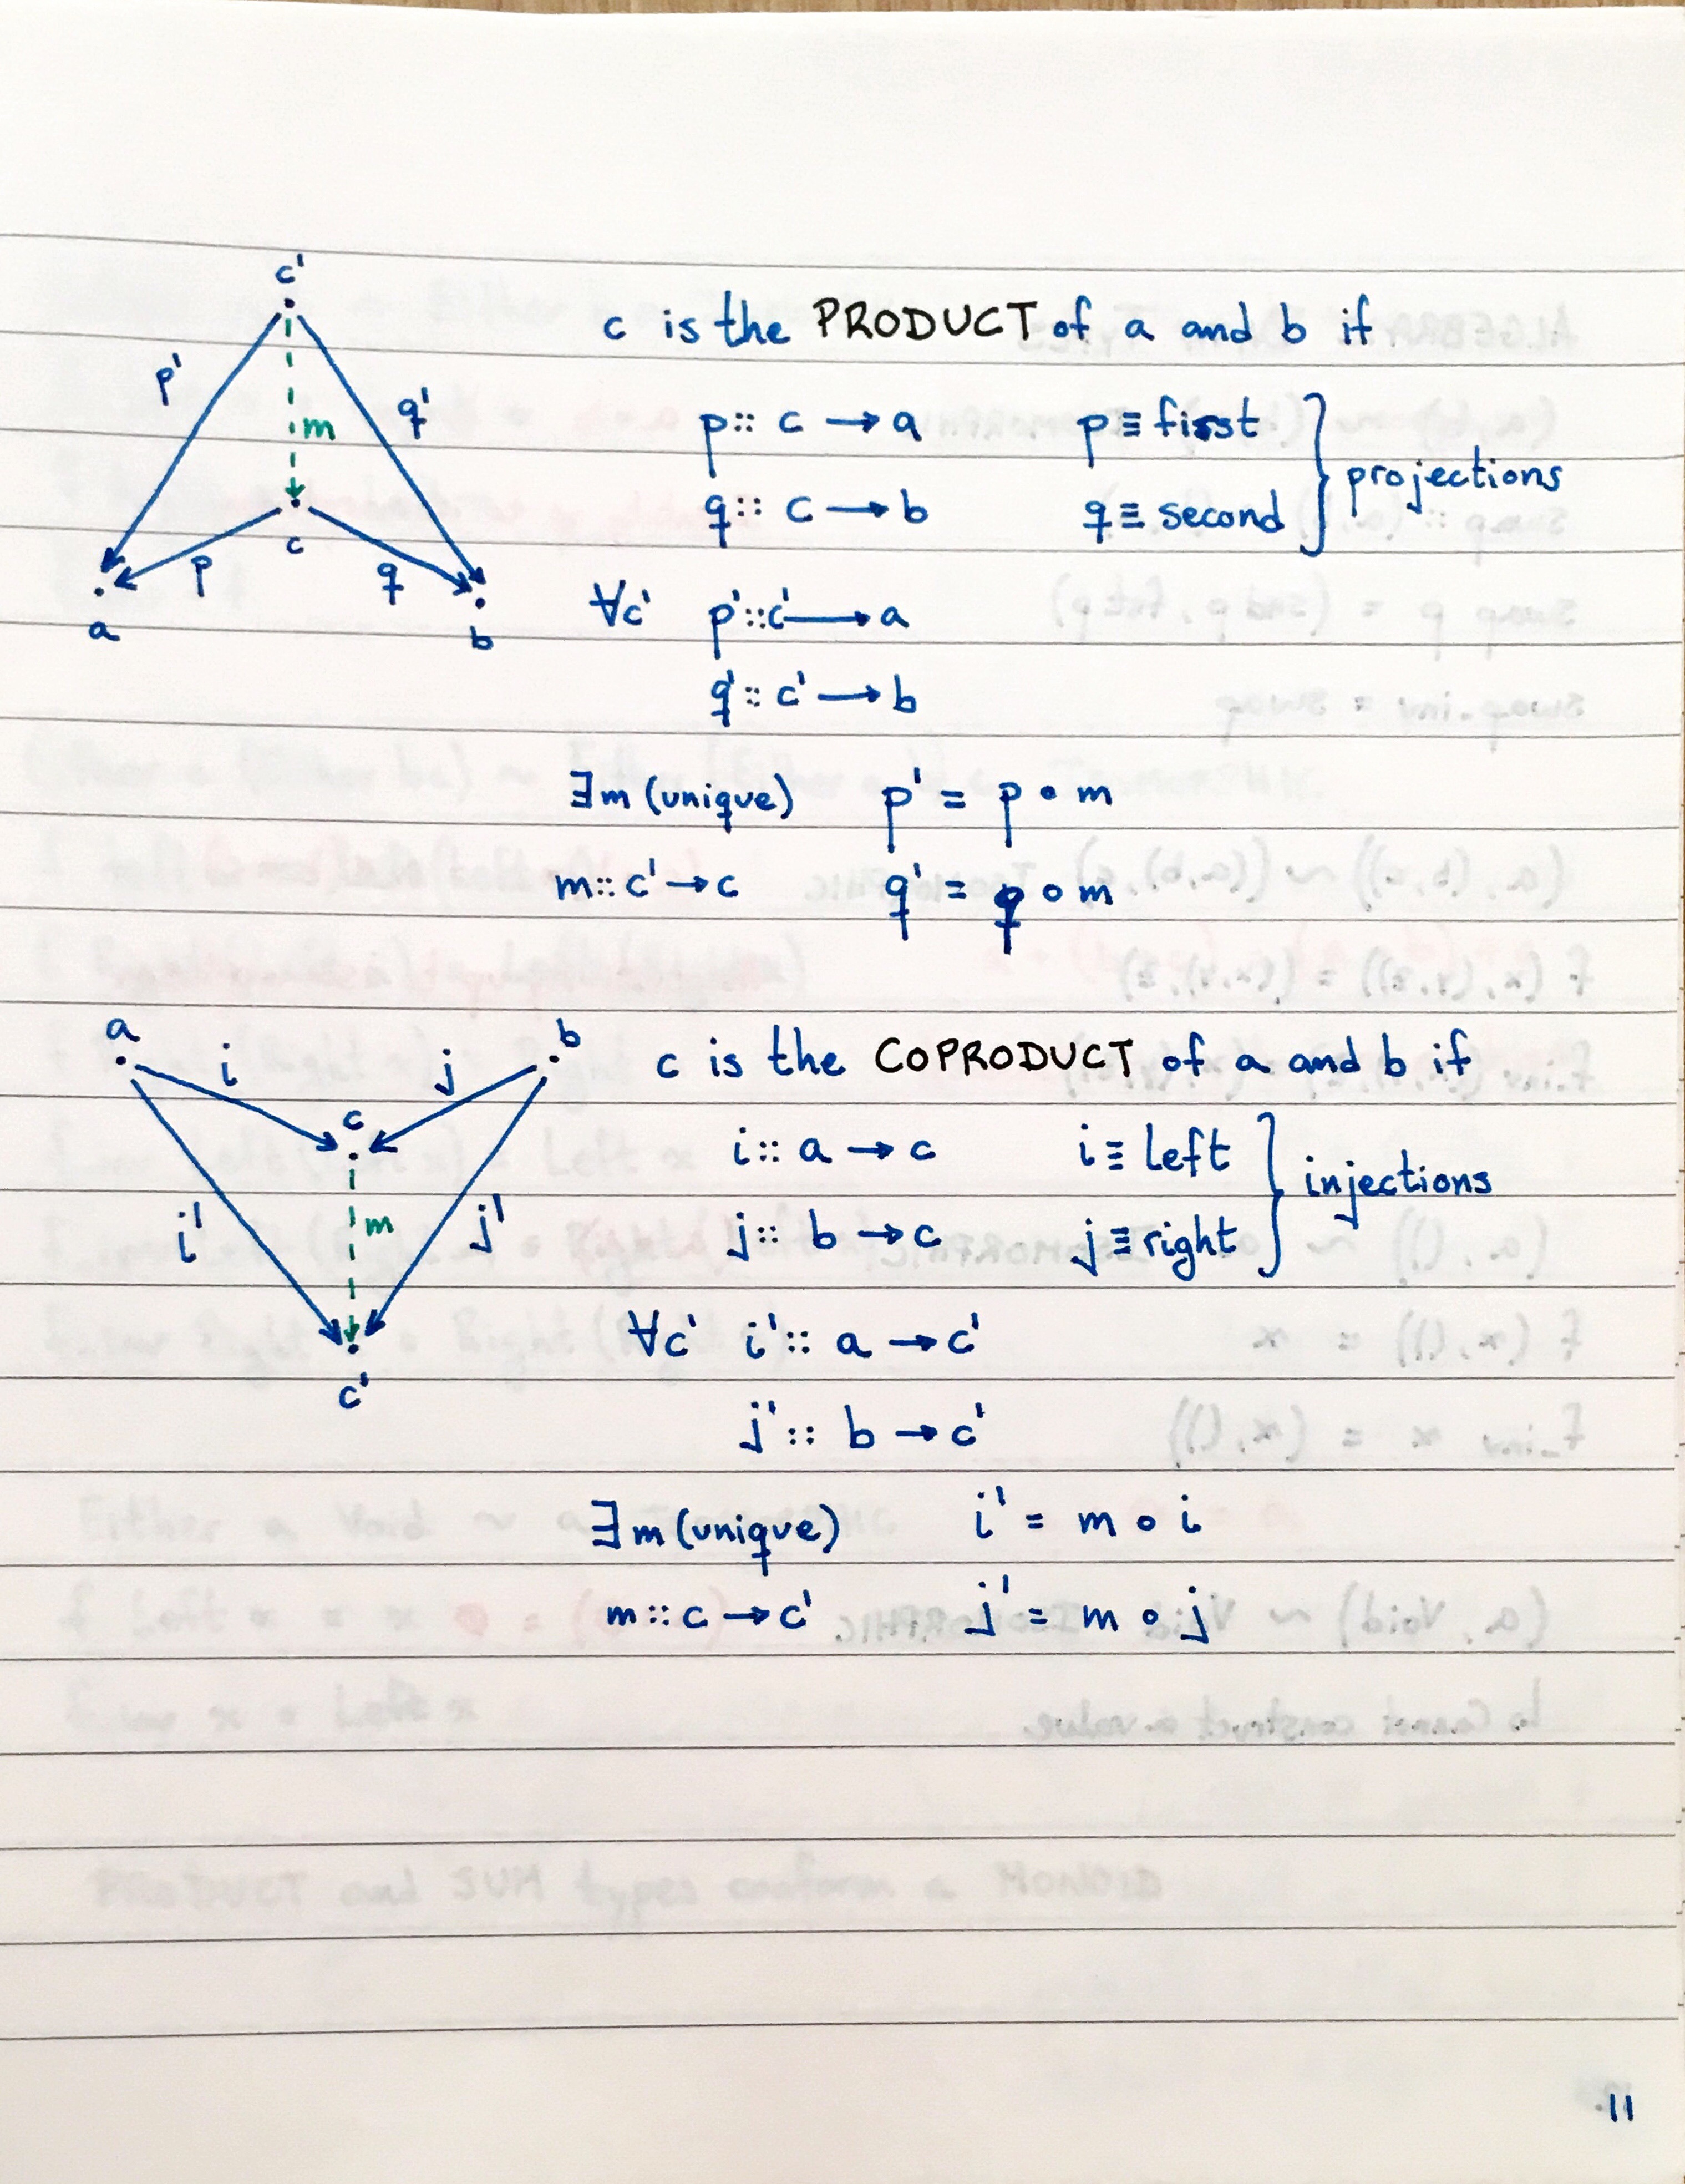 c'
p' q' m
c
p q
a b
c is the PRODUCT of a and b if
p :: c → a p ≡ first
q :: c → b q ≡ second
projections
∀c' p' :: c' → a
q' :: c' → b
∃m (unique) p' = p ∘ m
m :: c' → c q' = q ∘ m
a b
i j
c
i' m j'
c'
c is the COPRODUCT of a and b if
i :: a → c i ≡ left
j :: b → c j ≡ right
injections
∀c' i' :: a → c'
j' :: b → c'
∃m (unique) i' = m ∘ i
m :: c → c' j' = m ∘ j
PRODUCT and SUM types conform a MONOID
11